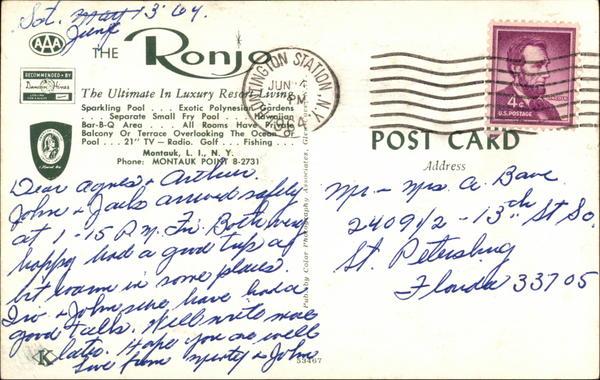 Sat. May 13 '64.
June
AAA
THE Ronjo
RECOMMENDED BY
Duncan Hines
The Ultimate In Luxury Resort Living
Sparkling Pool . . . Exotic Polynesian Gardens
. . . Separate Small Fry Pool . . . Hawaiian
Bar-B-Q Area . . . All Rooms Have Private
Balcony Or Terrace Overlooking The Ocean
Pool . . . 21" TV — Radio. Golf . . . Fishing . . .
Montauk, L. I., N. Y.
Phone: MONTAUK POINT 8-2731
HUNTINGTON STATION, N.Y.
JUN
PM
4¢
U.S. POSTAGE
POST CARD
Address
Dear Agnes & Arthur.
John & Jack arrived safely
at 1-15 P.M. Fri. Both very
happy had a good trip a
bit warm in some places.
Irv & John sure have had a
good talks. Will write more
later. Hope you are well
Love from & John
Mr - Mrs. A. Bave.
2409 1/2 - 13th St So.
St. Petersburg
Florida 33705
Pub. by Color Photography Associates,
K
53467